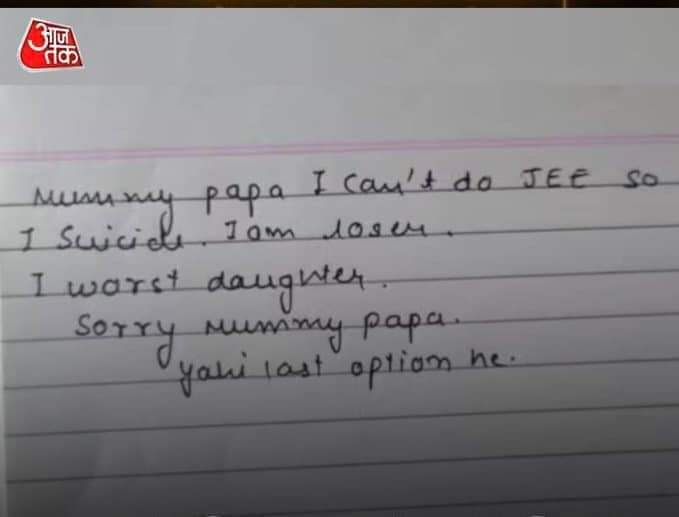 आज
तक
Mummy papa I can't do JEE so
I Suicide. I am loser.
I worst daughter.
Sorry Mummy papa.
yahi last option he.